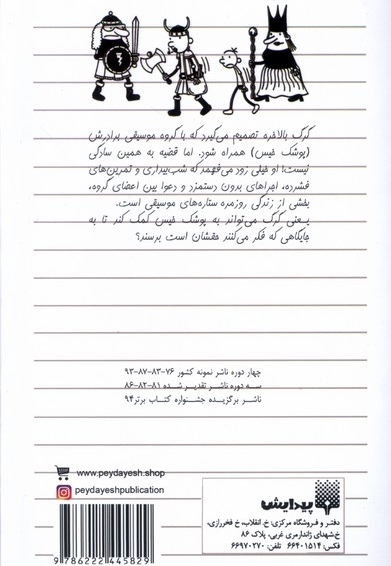 گرگ بالاخره تصمیم می‌گیرد که با گروه موسیقی برادرش
(پوشک خیس) همراه شود. اما قضیه به همین سادگی
نیست! او خیلی زود می‌فهمد که شب‌بیداری و تمرین‌های
فشرده، اجراهای بدون دستمزد و دعوا بین اعضای گروه،
بخشی از زندگی روزمره ستاره‌های موسیقی است.
یعنی گرگ می‌تواند به پوشک خیس کمک کند تا به
جایگاهی که فکر می‌کنند حقشان است برسند؟
چهار دوره ناشر نمونه کشور ۷۶-۸۳-۸۷-۹۳
سه دوره ناشر تقدیر شده ۸۱-۸۲-۸۶
ناشر برگزیده جشنواره کتاب برتر۹۴
www.peydayesh.shop
peydayeshpublication
پیدایش
دفتر و فروشگاه مرکزی: خ. انقلاب، خ فخررازی،
خ‌شهدای ژاندارمری غربی، پلاک ۸۶
فکس: ۶۶۴۰۱۵۱۴ تلفن: ۶۶۹۷۰۲۷۰
9 786222 445829